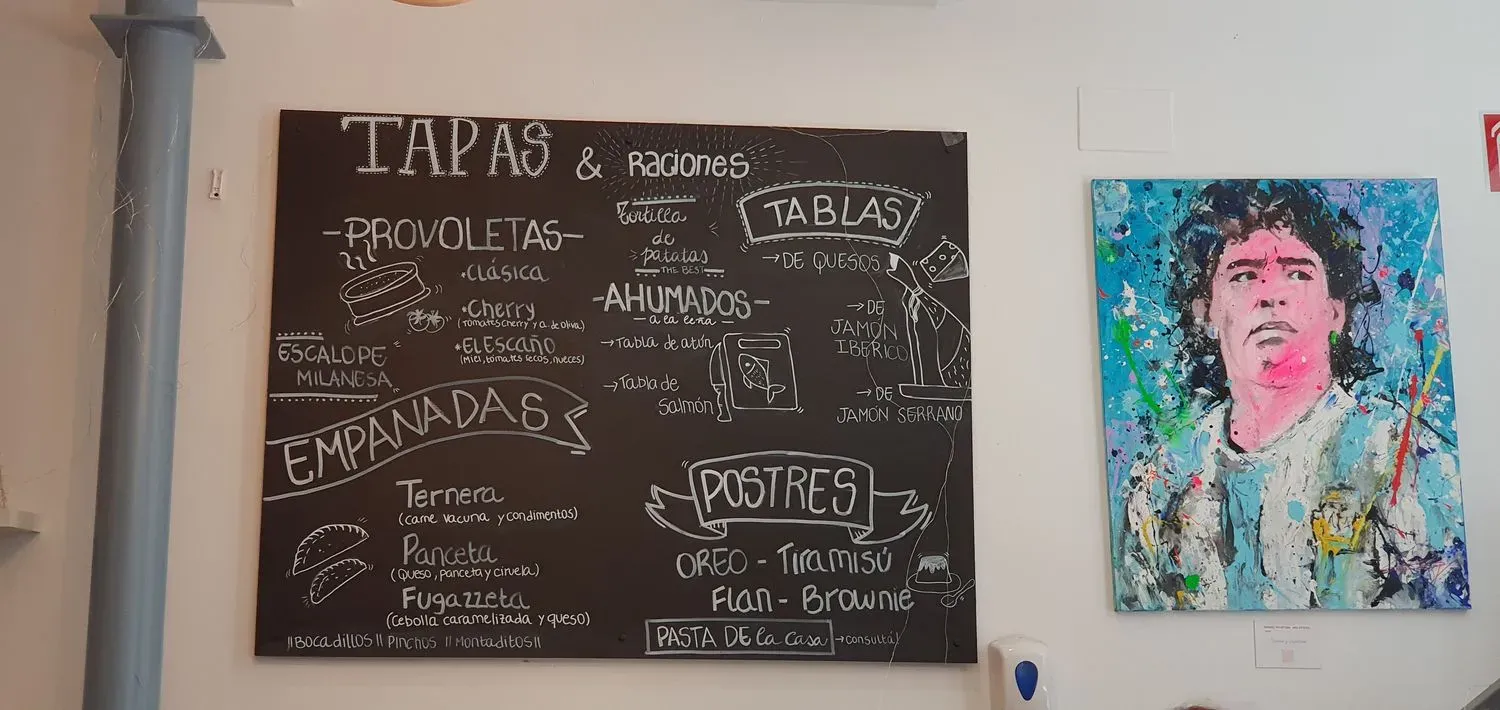 TAPAS & Raciones
-PROVOLETAS-
•Clásica
•Cherry
(Tomates Cherry y a. de oliva)
•EL ESCAÑO
(Miel, tomates secos, nueces)
ESCALOPE
MILANESA
Tortilla
de
patatas
THE BEST
-AHUMADOS-
- a la leña -
→Tabla de atún
→Tabla de
Salmón
TABLAS
→DE QUESOS
→DE
JAMÓN
IBÉRICO
→DE
JAMÓN SERRANO
EMPANADAS
Ternera
(carne vacuna y condimentos)
Panceta
(Queso, panceta y ciruela)
Fugazzeta
(Cebolla caramelizada y queso)
||Bocadillos|| Pinchos ||Montaditos||
POSTRES
OREO - Tiramisú
Flan - Brownie
PASTA DE la casa →consultá!